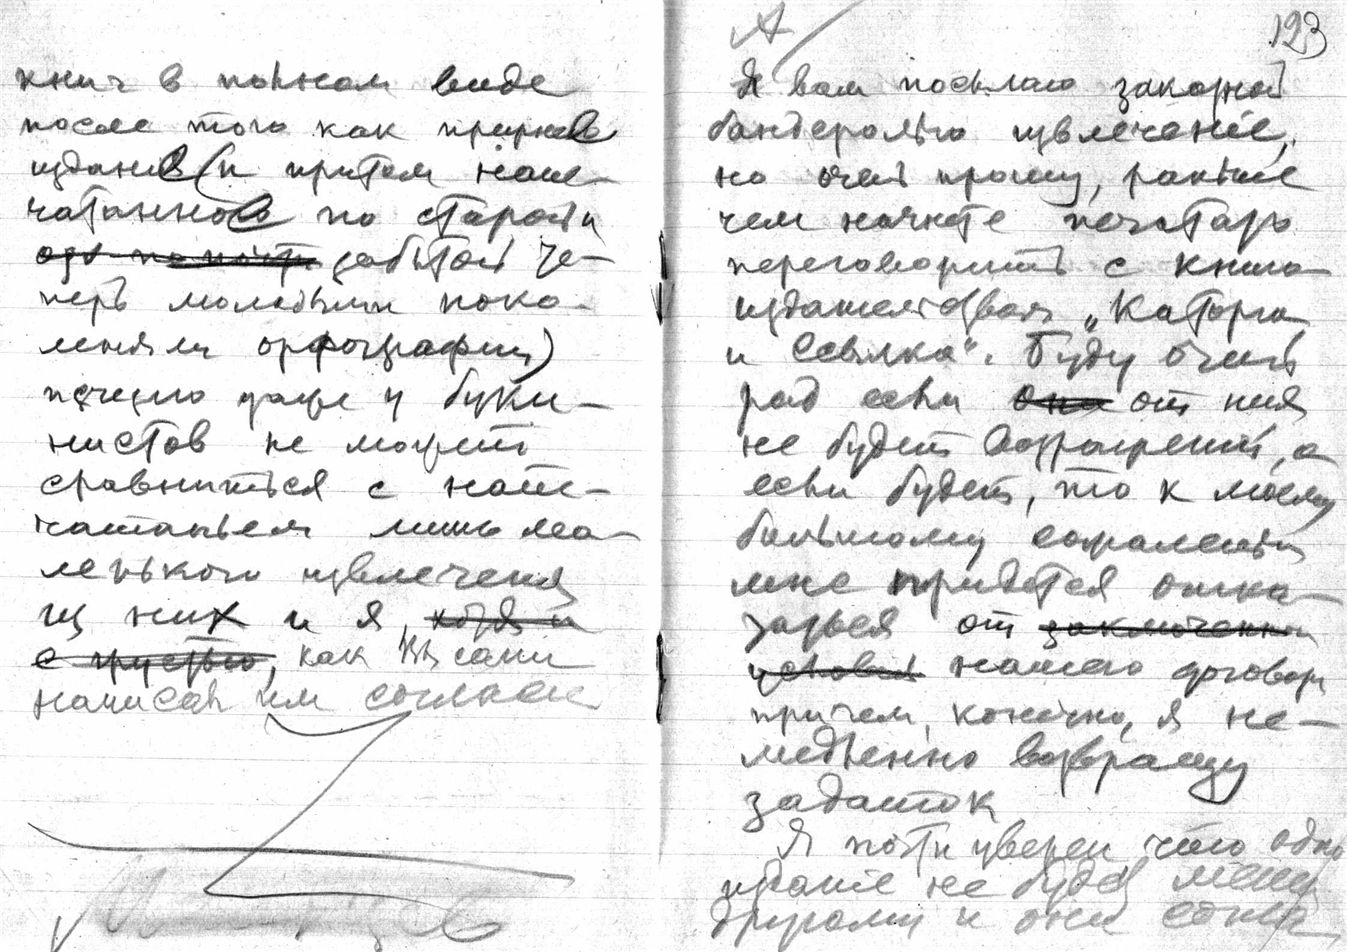 книг в полном виде
после того как прежнее
издание (и притом напе-
чатанное по старой и
забытой те-
перь молодыми поко-
лениями орфографии)
даже у буки-
нистов не может
сравниться с напе-
чатаньем лишь ма-
ленького извлечения
из них и я когда я
с грустью, как Вы сами
написали им согласие
193
Я вам посылаю заказной
бандеролью извлечение,
но очень прошу, раньше
чем начнете печатать
переговорить с книго-
издательством „Каторга
и Ссылка". Буду очень
рад если она от них
не будет возражений, а
если будет, то к моему
большому сожалению
мне придется отка-
заться от заключения
условия нашего договора
причем, конечно, я не-
медленно возвращу
задаток
Я почти уверен что одно
издание не будет мешать
другому и они